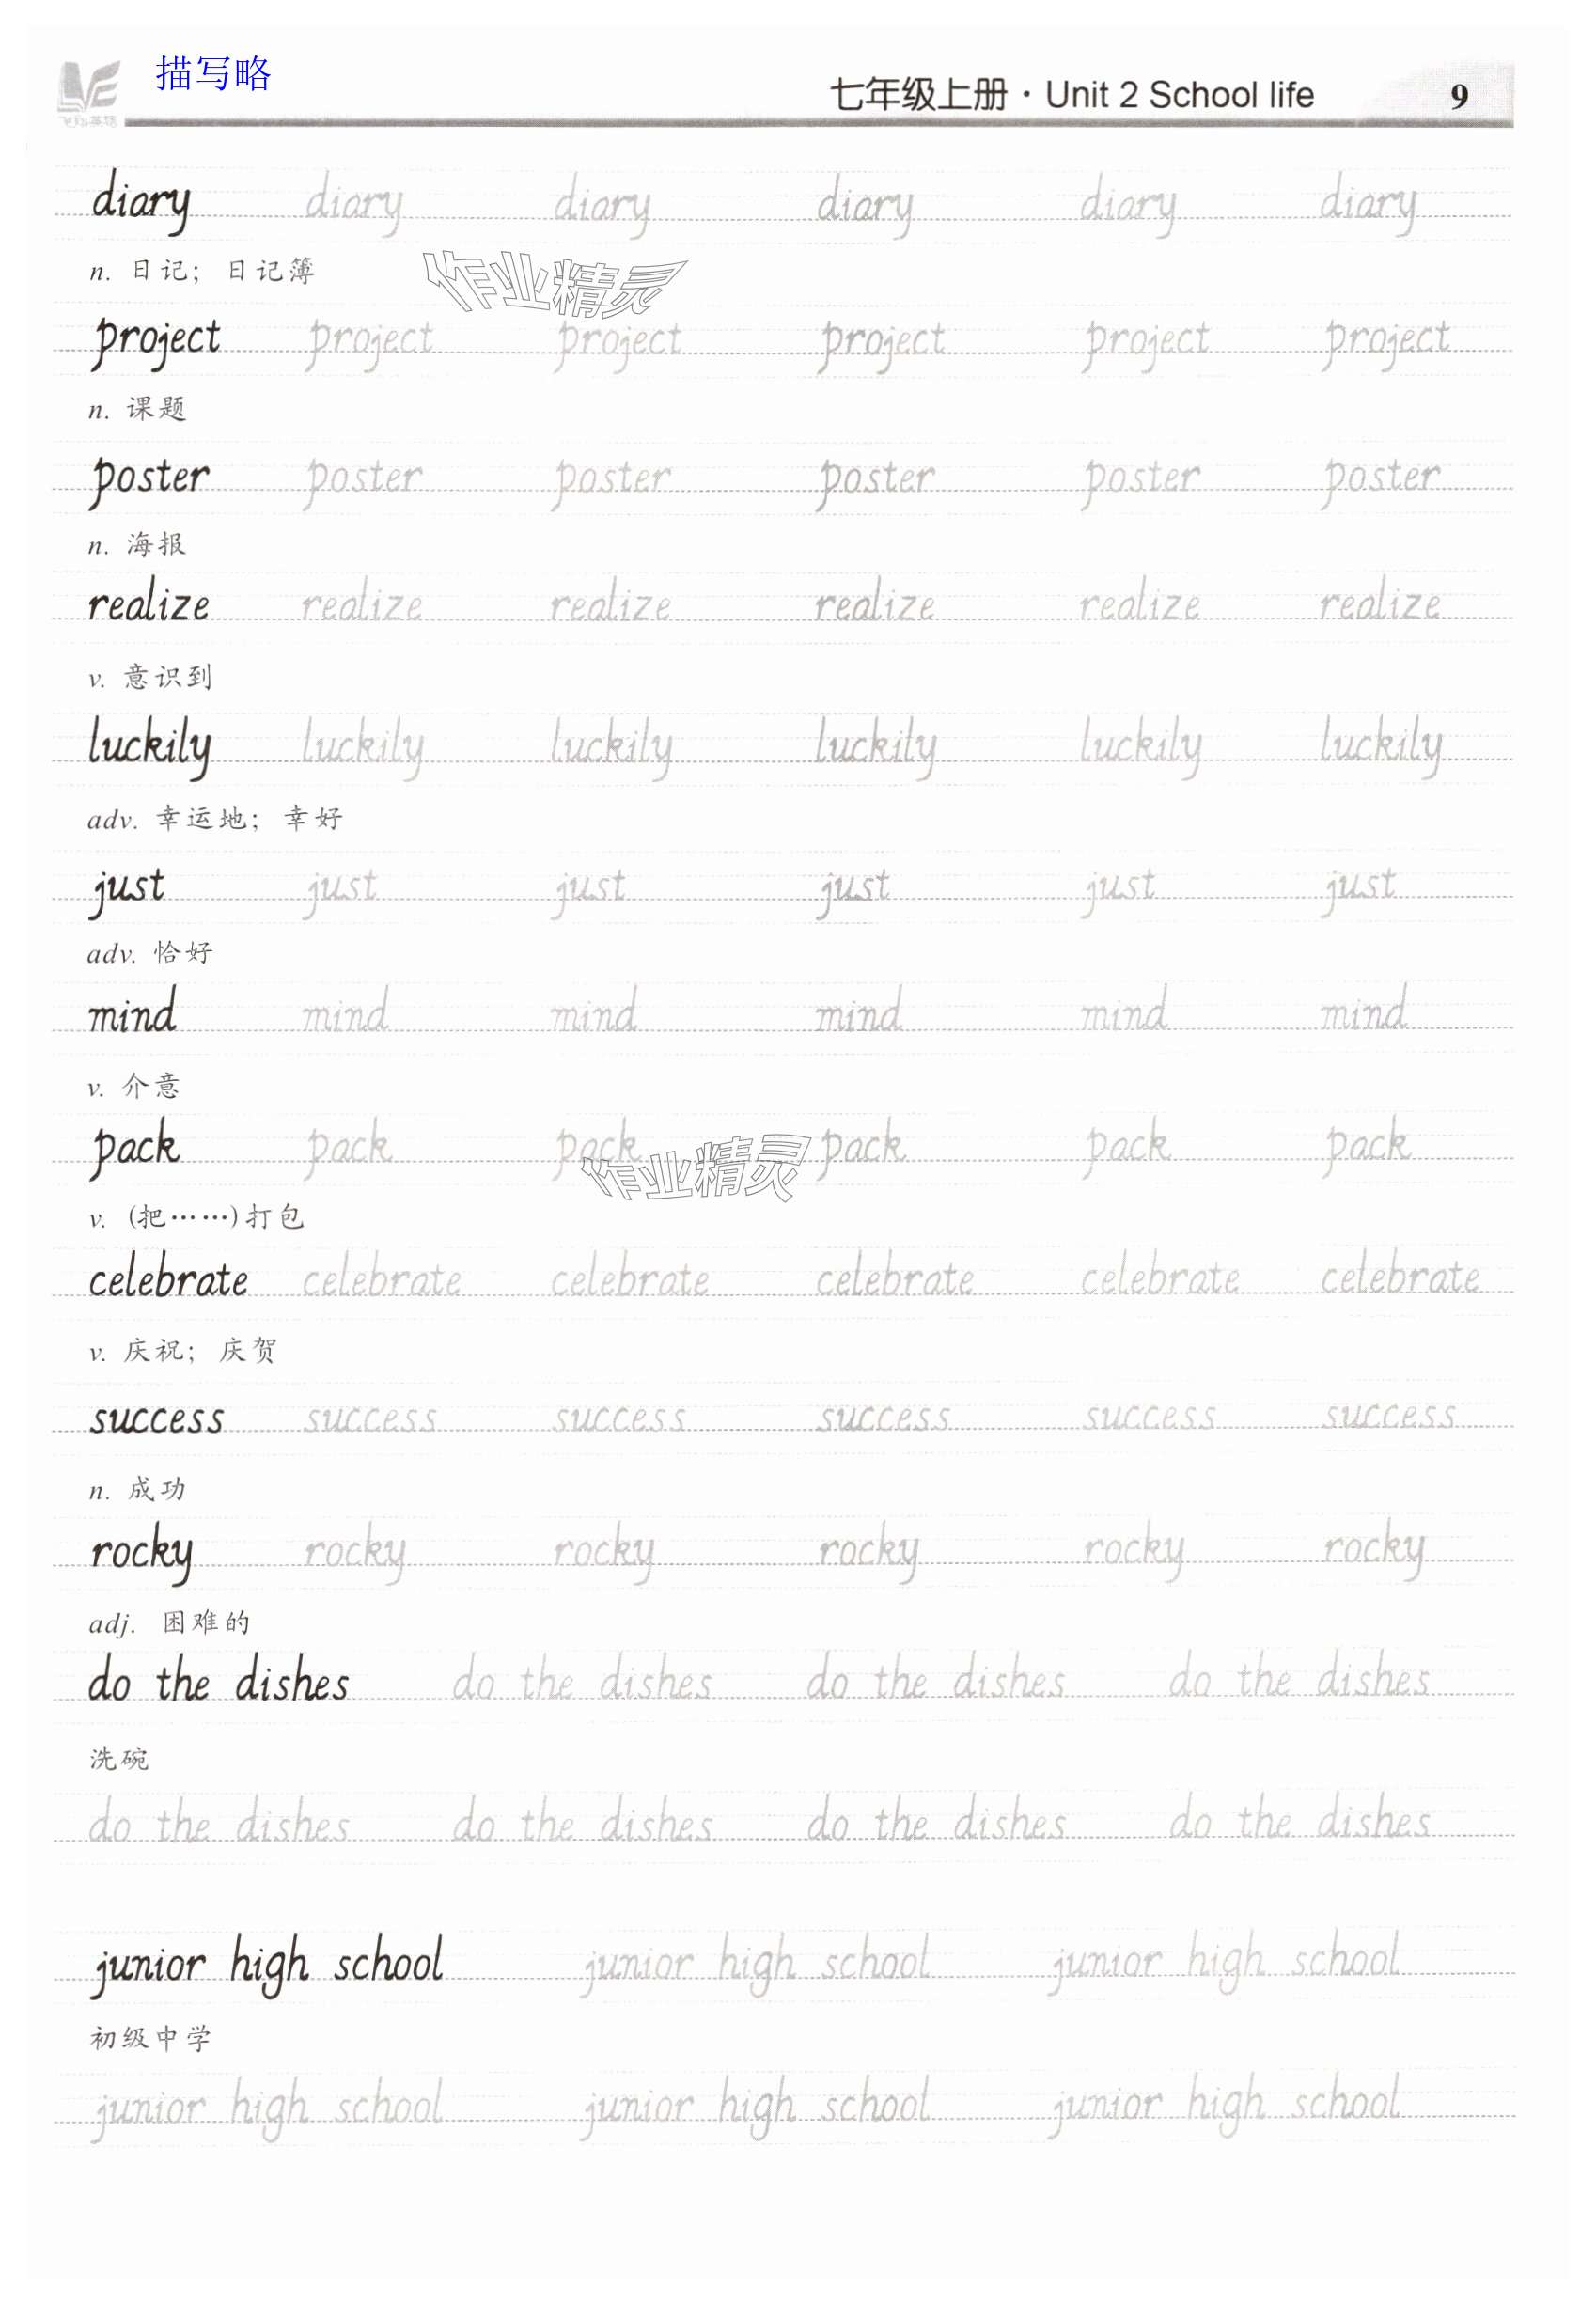 描写略
七年级上册·Unit 2 School life 9
diary diary diary diary diary diary
n. 日记；日记簿
作业精灵
project project project project project project
n. 课题
poster poster poster poster poster poster
n. 海报
realize realize realize realize realize realize
v. 意识到
luckily luckily luckily luckily luckily luckily
adv. 幸运地；幸好
just just just just just just
adv. 恰好
mind mind mind mind mind mind
v. 介意
pack pack pack pack pack pack
作业精灵
v. (把……)打包
celebrate celebrate celebrate celebrate celebrate celebrate
v. 庆祝；庆贺
success success success success success success
n. 成功
rocky rocky rocky rocky rocky rocky
adj. 困难的
do the dishes do the dishes do the dishes do the dishes
洗碗
do the dishes do the dishes do the dishes do the dishes
junior high school junior high school junior high school
初级中学
junior high school junior high school junior high school